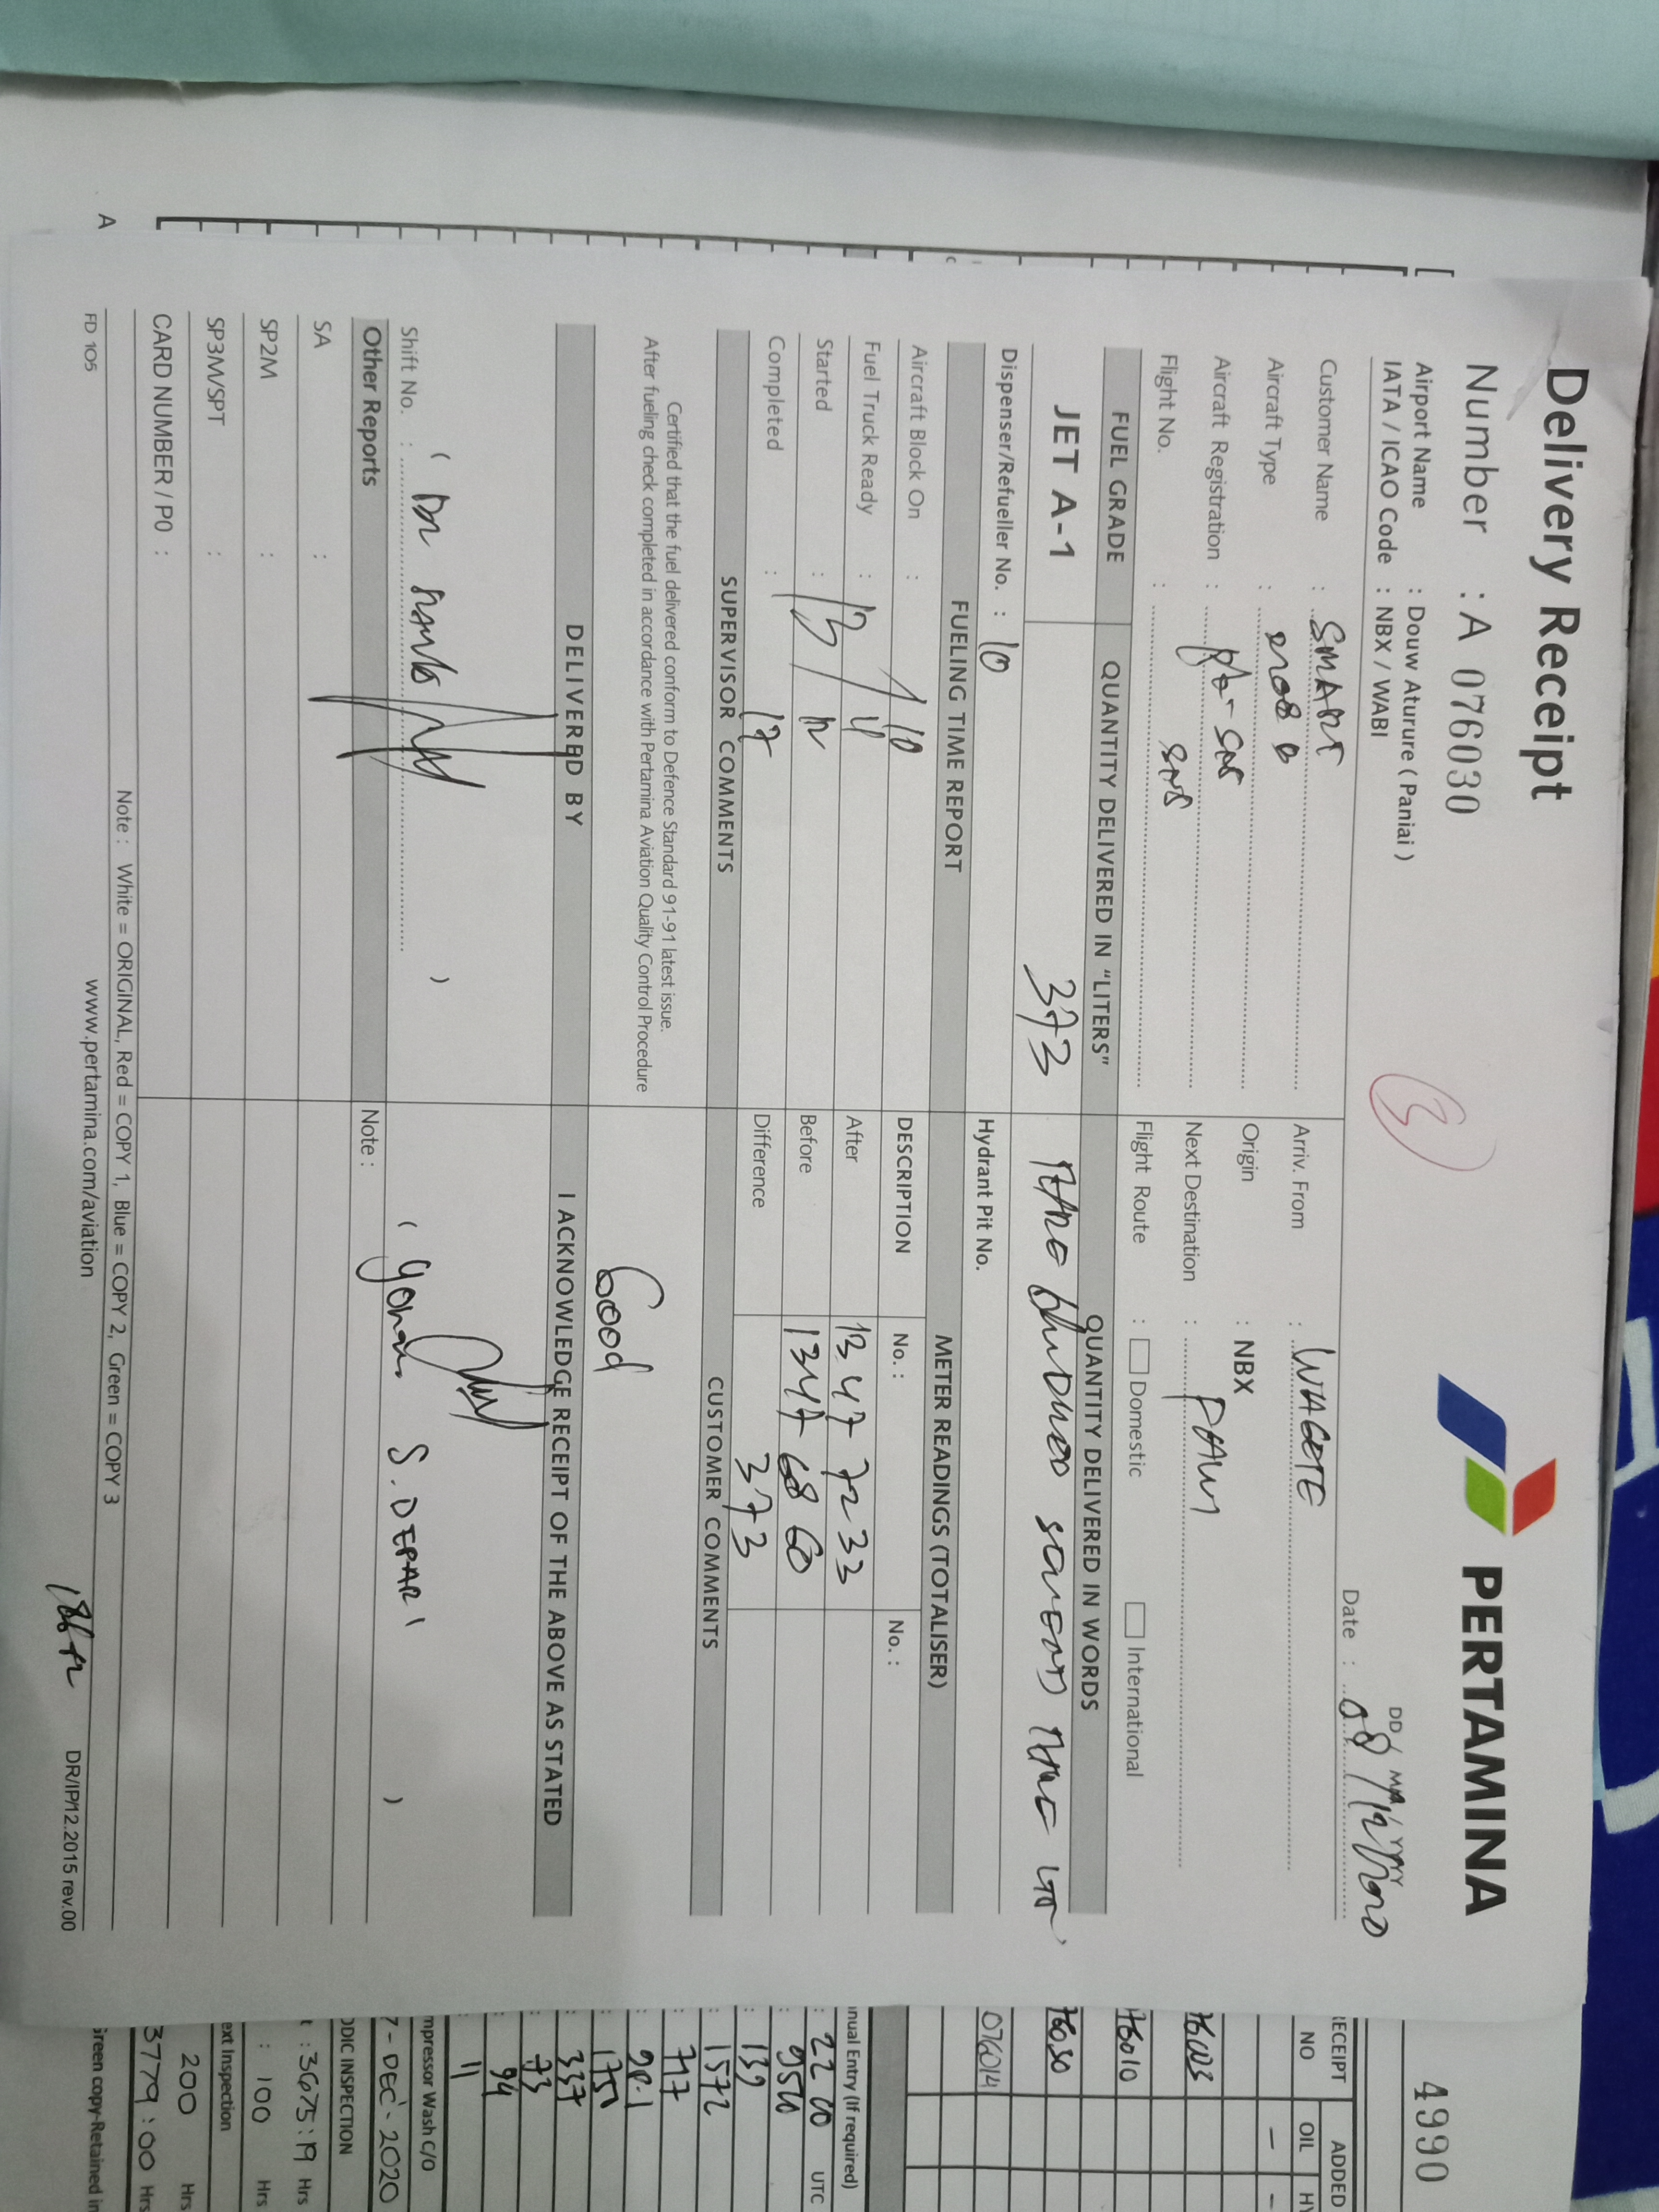 Delivery Receipt
PERTAMINA
Number : A 076030
Airport Name : Douw Aturure ( Paniai )
IATA / ICAO Code : NBX / WABI
DD MM YYYY
Date : 08
Customer Name : SMART
Arriv. From : WAGETE
Aircraft Type :
Origin : NBX
Aircraft Registration :
Next Destination :
Flight No. :
Flight Route : Domestic International
FUEL GRADE
QUANTITY DELIVERED IN "LITERS"
QUANTITY DELIVERED IN WORDS
JET A-1
373
Dispenser/Refueller No. : 10
Hydrant Pit No.
FUELING TIME REPORT
METER READINGS (TOTALISER)
Aircraft Block On : 10
DESCRIPTION No. : No. :
Fuel Truck Ready :
After 1347 7233
Started :
Before 1347 6860
Completed : 17
Difference 373
SUPERVISOR COMMENTS
CUSTOMER COMMENTS
Certified that the fuel delivered conform to Defence Standard 91-91 latest issue.
After fueling check completed in accordance with Pertamina Aviation Quality Control Procedure
Good
DELIVERED BY
I ACKNOWLEDGE RECEIPT OF THE ABOVE AS STATED
Shift No. : ( )
( S. DEPARI )
Other Reports
Note :
SA :
SP2M :
SP3M/SPT :
CARD NUMBER / PO :
Note : White = ORIGINAL, Red = COPY 1, Blue = COPY 2, Green = COPY 3
FD 105
www.pertamina.com/aviation
DR/IP/12.2015 rev.00
A
4990
RECEIPT
ADDED
NO
OIL
76003
76010
76030
076014
nual Entry (If required)
: 22 00 UTC
: 9500
: 139
: 1572
: 717
: 337
: 73
: 94
: 11
mpressor Wash C/O
7 - DEC - 2020
ODIC INSPECTION
t : 3675:19 Hrs
: 100 Hrs
ext Inspection
200 Hrs
3779:00 Hrs
Green copy-Retained in